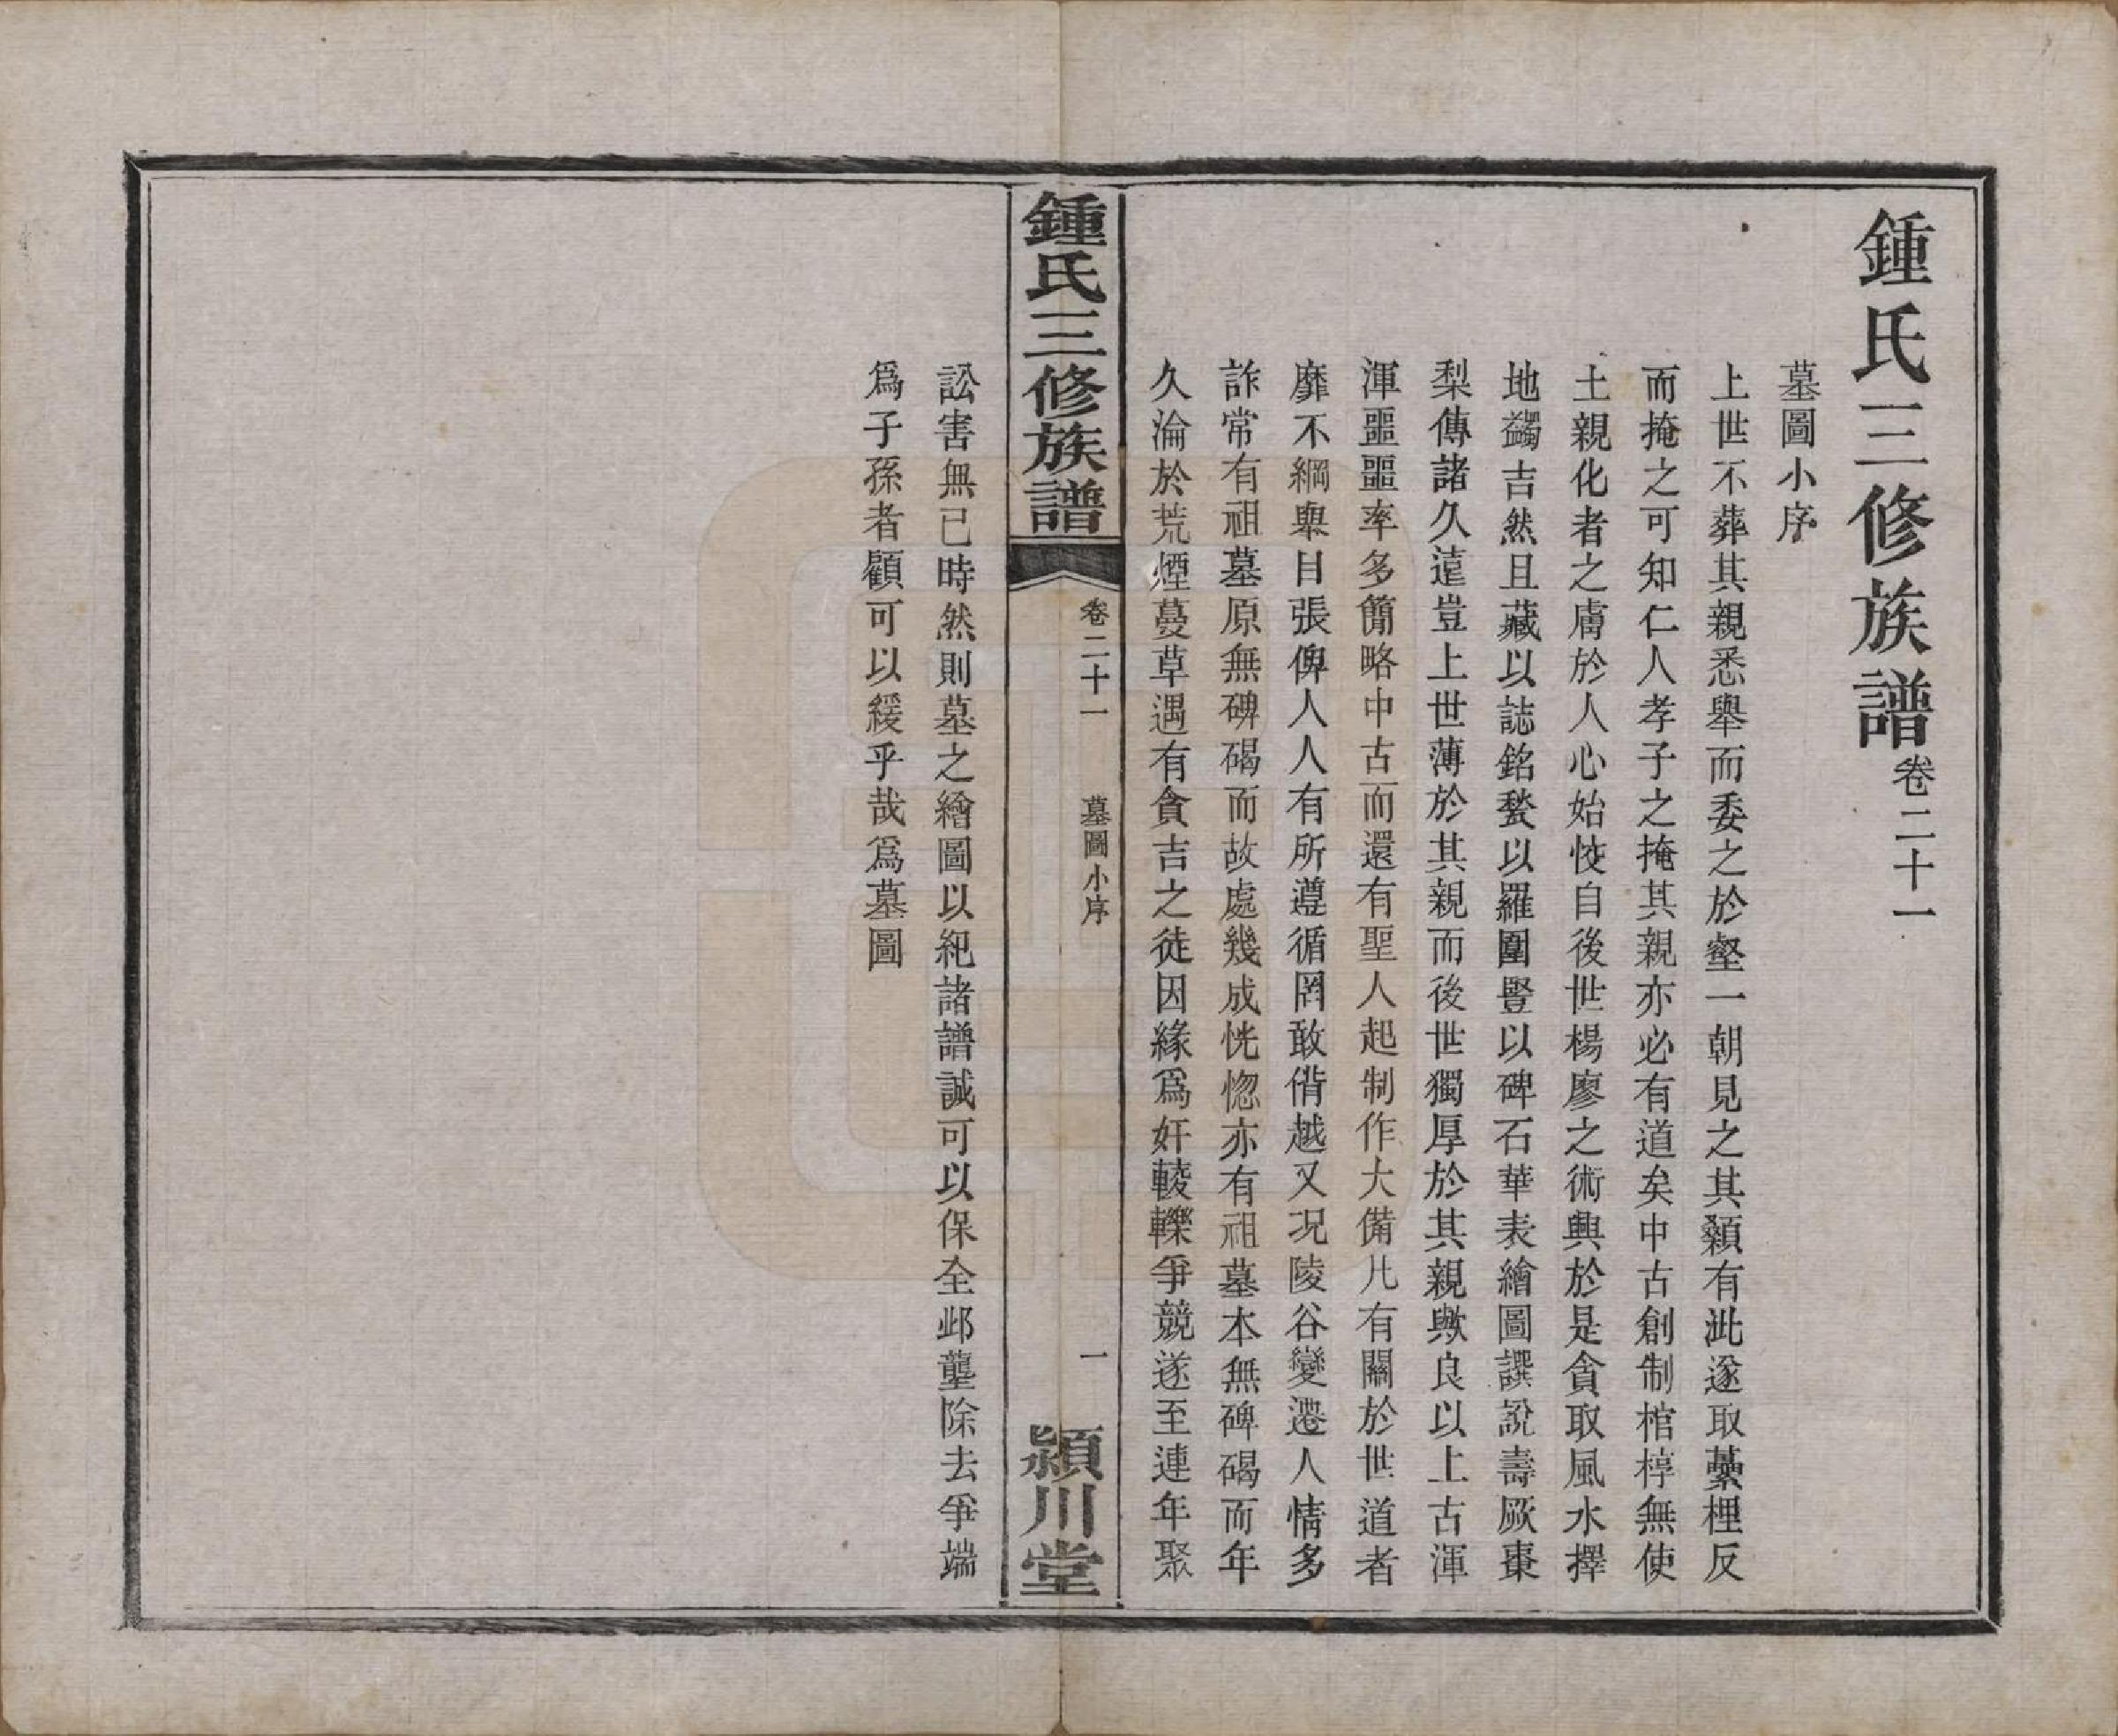 鍾氏三修族譜卷二十一
墓圖小序
上世不葬其親悉舉而委之於壑一朝見之其顙有泚遂取虆梩反
而掩之可知仁人孝子之掩其親亦必有道矣中古創制棺椁無使
土親化者之膚於人心始恔自後世楊廖之術興於是貪取風水擇
地蠲吉然且藏以誌銘甃以羅圍豎以碑石華表繪圖譔說壽厥棗
梨傳諸久遠豈上世薄於其親而後世獨厚於其親歟良以上古渾
渾噩噩率多簡略中古而還有聖人起制作大備凡有關於世道者
靡不綱舉目張俾人人有所遵循罔敢偝越又况陵谷變遷人情多
詐常有祖墓原無碑碣而故處幾成恍惚亦有祖墓本無碑碣而年
久淪於荒煙蔓草遇有貪吉之徒因緣爲奸輘轢爭競遂至連年聚
鍾氏三修族譜 卷二十一 墓圖小序 一 潁川堂
訟害無已時然則墓之繪圖以紀諸譜誠可以保全邱壟除去爭端
爲子孫者顧可以緩乎哉爲墓圖